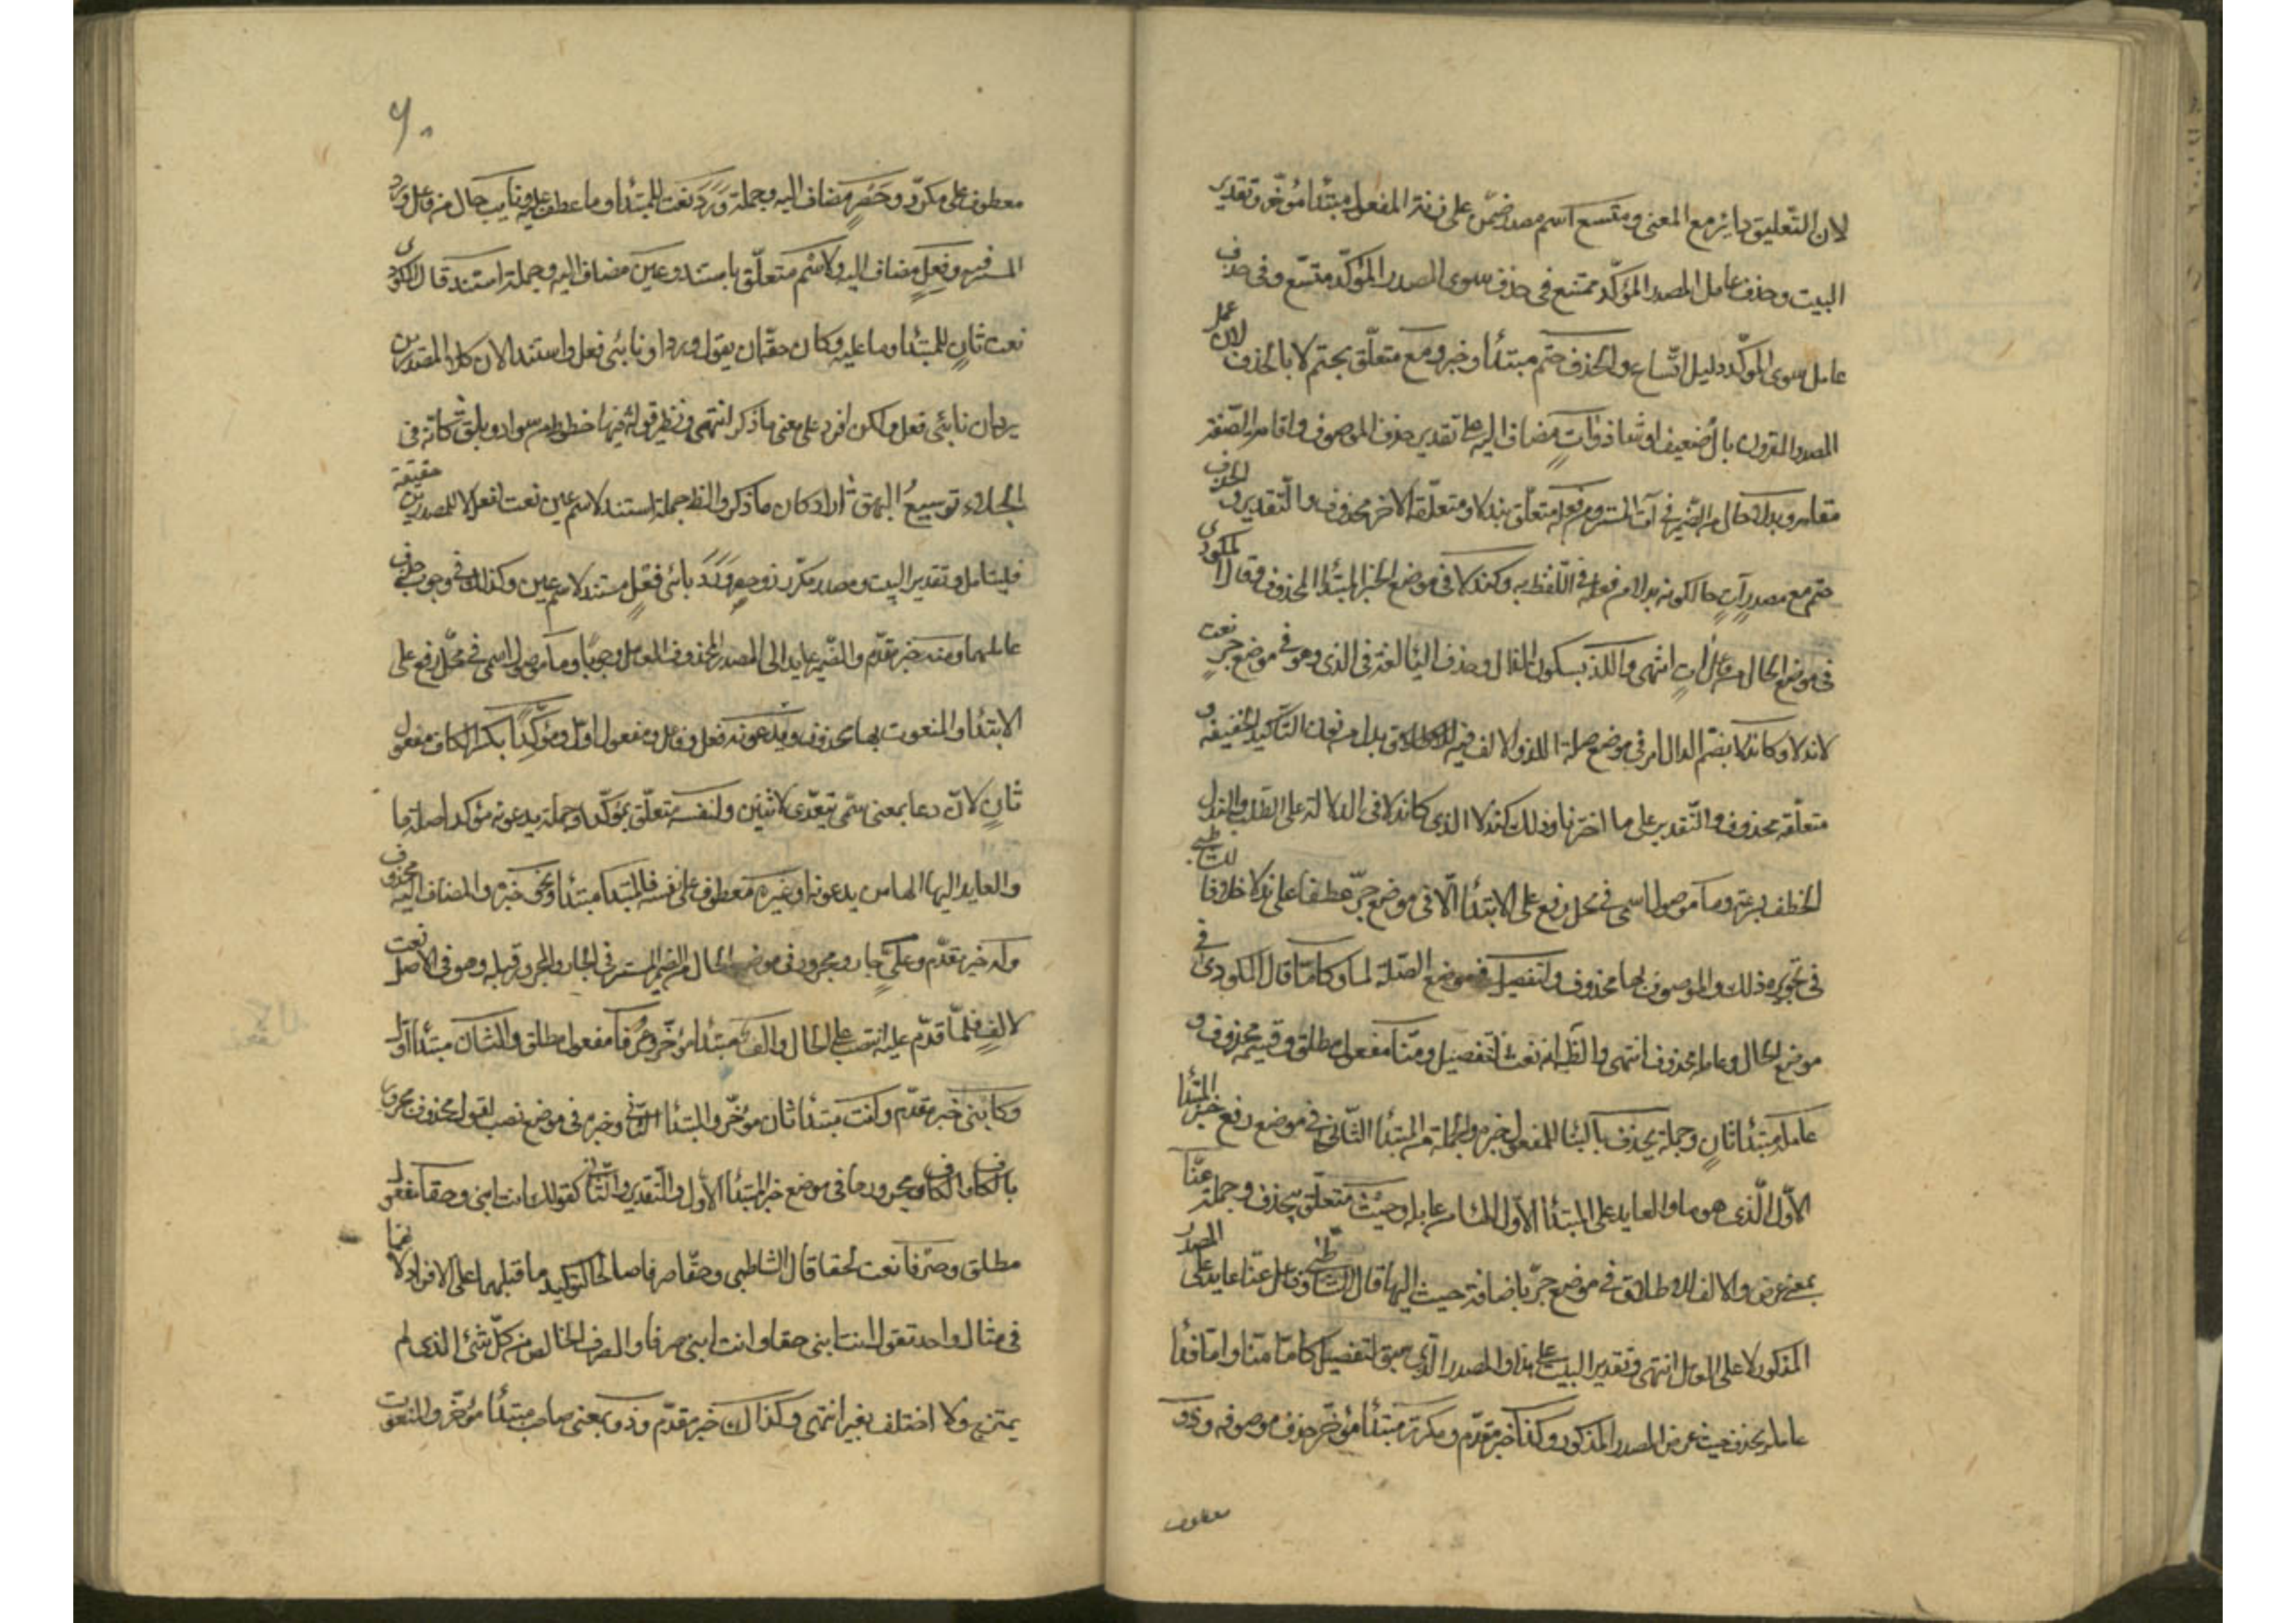 لان التعليق داير مع المعنى ومتسع اسم مصدر ميمي على زنة المفعول مبتدأ مؤخر وتقدير
البيت وحذف عامل المصدر المؤكد ممتنع في حذف سوى المصدر المؤكد متسع وفي حذف
عامل سوى المؤكد دليل اتساع والحذف حتم مبتدأ وخبر ومع متعلق بحتم لا بالحذف لان عمل
المصدر المقرون بال ضعيف او شاذ وآت مضاف اليه على تقدير حذف الموصوف واقامة الصفة
مقامه وبدلا حال من الضمير في آت المستتر ومن فعله متعلق ببدلا ومتعلقه الآخر محذوف والتقدير والحذف
حتم مع مصدر آت حال كونه بدلا من فعله في اللفظ به وكندلا في موضع الخبر لمبتدأ المحذوف وقال المكودي
في موضع الحال من فاعل آت انتهى واللذ بسكون الذال وحذف اليا لغة في الذي وهو في موضع جر نعت
لاندلا وكاندلا بضم الدال امر في موضع صلة اللذ والالف فيه بدل من نون التأكيد الخفيفة و
متعلقه محذوف والتقدير على ما اخترنا وذلك كندلا الذي كاندلا في الدلالة على الطلب والندل
الخطف بسرعة وما موصول اسمي في محل رفع على الابتدأ لا في موضع جر عطفا على ندلا خلافا للشاطبي
في تجويزه ذلك والموصوف بها محذوف ولتفصيل في موضع الصلة لما وكاما قال المكودي في
موضع الحال وعامله محذوف انتهى والظ انه نعت لتفصيل ومنا مفعول مطلق وقسيمه محذوف و
عامله مبتدأ ثان وجملة يحذف بالبنا للمفعول خبره والجملة من المبتدأ الثاني وخبره في موضع رفع خبر المبتدأ
الاول الذي هو ما والعايد على المبتدأ الاول الها من عامله وحيث متعلق بيحذف وجملة عنا
بمعنى عرض والالف للاطلاق في موضع جر باضافة حيث اليها قال الشاطبي وفاعل عنا عايد على المصدر
المذكور لا على العامل انتهى وتقدير البيت على هذا والمصدر الذي سيق لتفصيل كاما منا واما فدا
عامله يحذف حيث عرض المصدر المذكور وكذا خبر مقدم ومكرر مبتدأ مؤخر حذف موصوفه وذو
معطوف
٦٠
معطوف على مكرر وحصر مضاف اليه وجملة ورد نعت للمبتدأ وما عطف عليه ونايب حال من فاعل ورد
المستتر فيه وفعل مضاف اليه ولاسم متعلق باستند وعين مضاف اليه وجملة استند قال المكودي
نعت ثان للمبتدأ وما عليه وكان حقه ان يقول وردا ونائبي فعل واستندا لان كلا المصدرين
يردان نائبي فعل ولكن افرد على معنى ما ذكر انتهى ونظيره قوله فيها خطوط من سواد وبلق كانه في
الجلد توليع البهق اراد كان ما ذكر والظ جملة استند لاسم عين نعت لفعل لا للمصدرين حقيقة
فليتامل وتقدير البيت ومصدر مكرر وذو حصر وردا نائبي فعل مستند لاسم عين وكذلك في وجوب حذف
عاملهما ومنه خبر مقدم والضمير عايد الى المصدر المحذوف العامل وجوبا وما موصول اسمي في محل رفع على
الابتدا والمنعوت بها محذوف ويدعونه فعل وفاعل ومفعول اول ومؤكدا بكسر الكاف مفعول
ثان لان دعا بمعنى سمى يتعدى لاثنين ولنفسه متعلق بمؤكدا وجملة يدعونه مؤكدا صلة ما
والعايد اليها الها من يدعونه او غيره معطوف على نفسه فالمبتدا مبتدأ ونحو خبره والمضاف اليه محذوف
وله خبر مقدم وعلي جار ومجرور في موضع الحال من الضمير المستتر في الجار والمجرور قبله وهو في الاصل نعت
لالف فلما قدم عليه انتصب على الحال والف مبتدأ مؤخر وعرفا مفعول مطلق والثان مبتدأ اول
وكابني خبر مقدم وانت مبتدأ ثان مؤخر والمبتدأ الثاني وخبره في موضع نصب لقول محذوف مجرور
بالكاف والكاف ومجرورها في موضع خبر المبتدأ الاول والتقدير والثاني كقولك انت ابني وحقا مفعول
مطلق وصرفا نعت لحقا قال الشاطبي وحقا صرفا صالحا لتوكيد ما قبلهما على الانفراد لا انهما
في مثال واحد تقول انت ابني حقا وانت ابني صرفا والصرف الخالص من كل شئ الذي لم
يمتزج ولا اختلف بغيره انتهى وكذاك خبر مقدم وذو بمعنى صاحب مبتدأ مؤخر والمنعوت